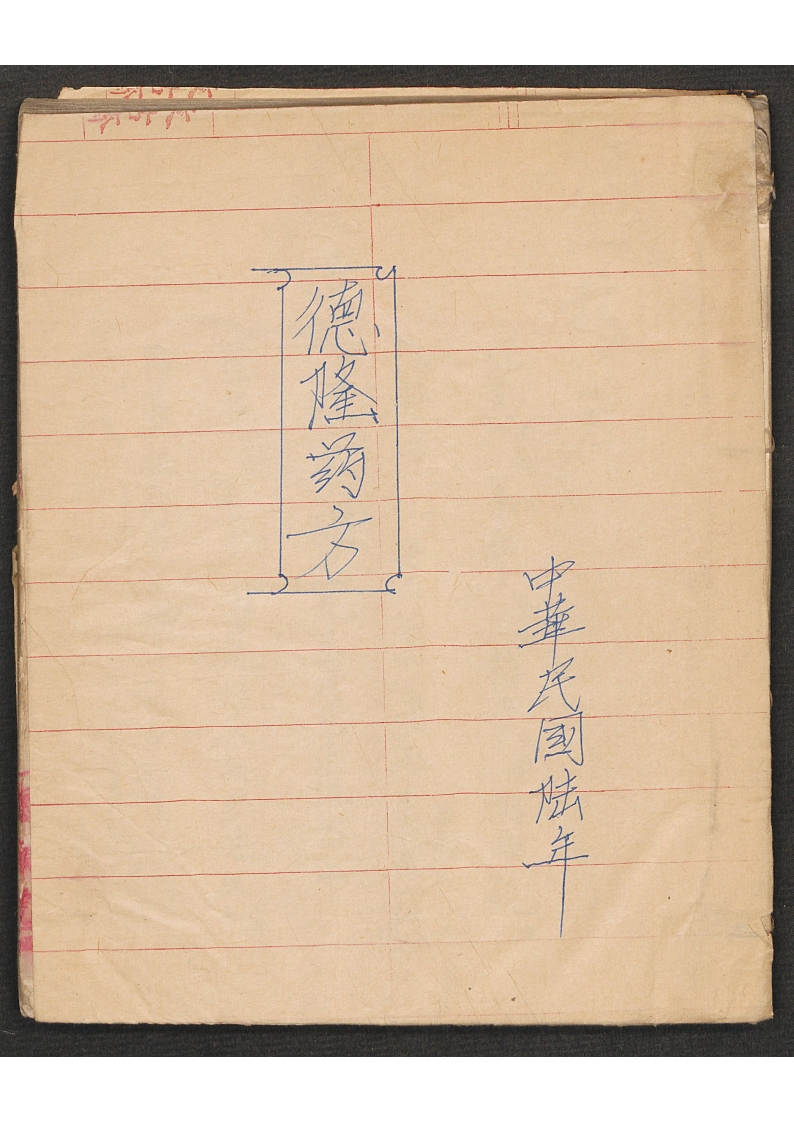 中華民國陆年
德隆药方